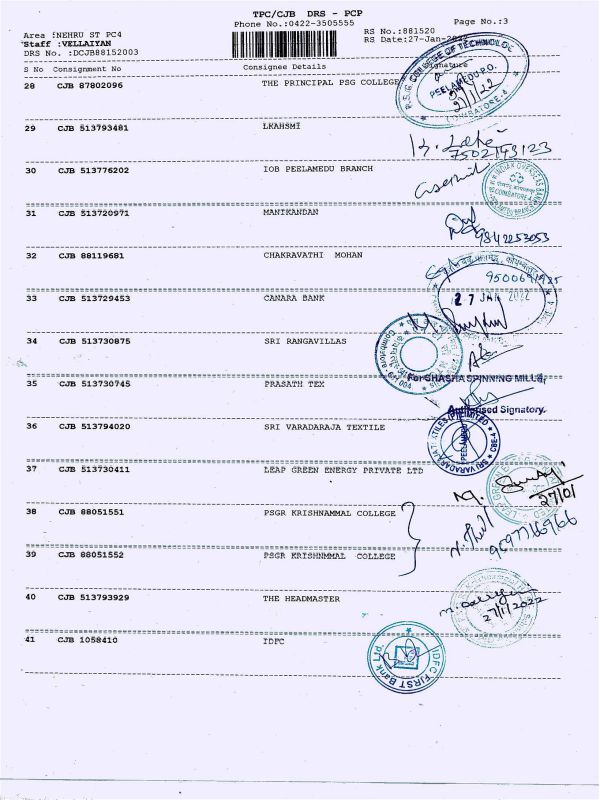 TPC/CJB DRS - PCP
Phone No.:0422-3505555
Page No.:3
Area :NEHRU ST PC4
RS No.:881520
Staff :VELLAIYAN
RS Date:27-Jan-2022
DRS No. :DCJB88152003
S No Consignment No Consignee Details Signature
28 CJB 87802096 THE PRINCIPAL PSG COLLEGE
P.S.G. COLLEGE OF TECHNOLOGY
PEELAMEDU P.O.
27/1/22
COIMBATORE-4
29 CJB 513793481 LKAHSMI
7502193123
30 CJB 513776202 IOB PEELAMEDU BRANCH
INDIAN OVERSEAS BANK
COIMBATORE-4
31 CJB 513720971 MANIKANDAN
9842253053
32 CJB 88119681 CHAKRAVATHI MOHAN
33 CJB 513729453 CANARA BANK
27 JAN 2022
34 CJB 513730875 SRI RANGAVILLAS
Coimbatore
641 004
35 CJB 513730745 PRASATH TEX
For SHASHA SPINNING MILLS,
Authorised Signatory.
36 CJB 513794020 SRI VARADARAJA TEXTILE
SRI VARADARAJA TEXTILES (P) LIMITED
PEELAMEDU
CBE-4
37 CJB 513730411 LEAP GREEN ENERGY PRIVATE LTD
27/01
38 CJB 88051551 PSGR KRISHNAMMAL COLLEGE
39 CJB 88051552 PSGR KRISHNMMAL COLLEGE
40 CJB 513793929 THE HEADMASTER
27/1/2022
41 CJB 1058410 IDFC
IDFC FIRST Bank